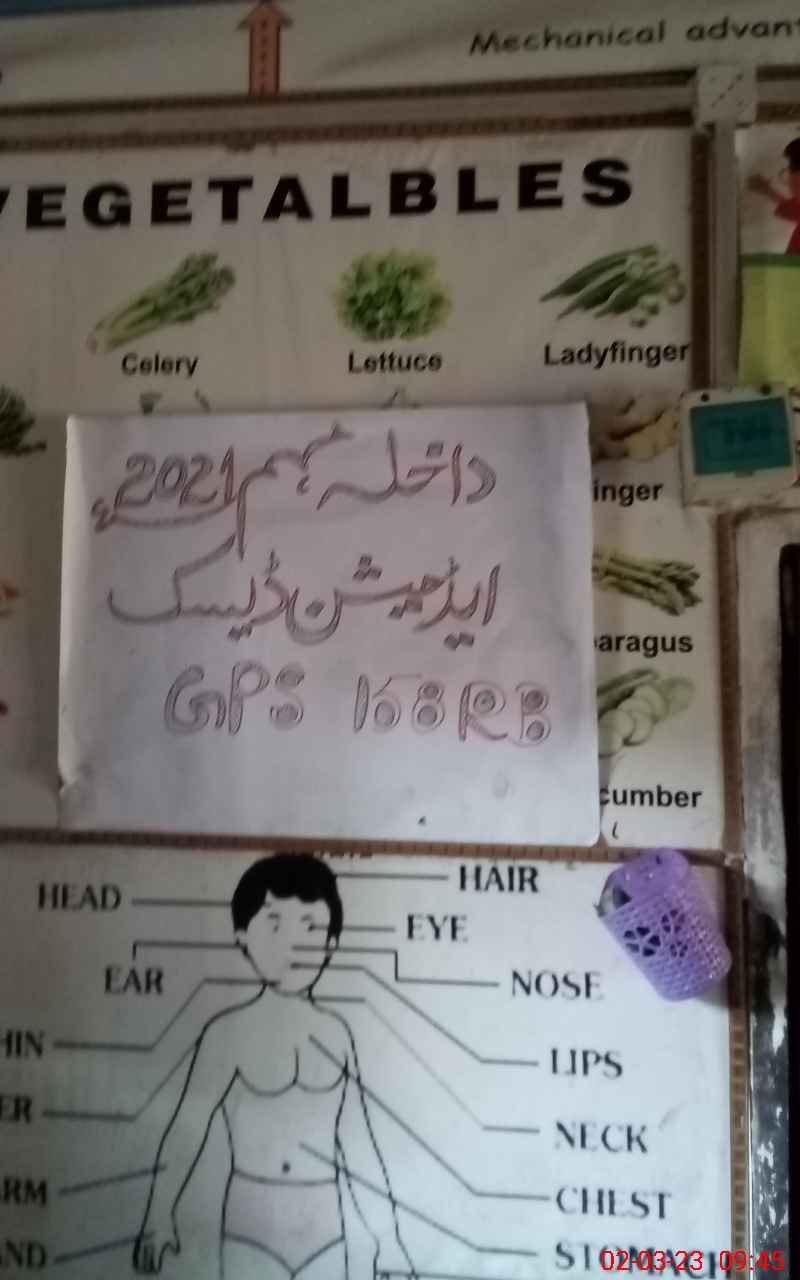 Mechanical advan
VEGETALBLES
Celery Lettuce Ladyfinger
inger
داخلہ مہم 2021ء
ایڈمیشن ڈیسک
aragus
GPS 168 RB
cumber
HEAD HAIR
EYE
EAR NOSE
HIN LIPS
ER NECK
ARM CHEST
AND STOMACH
02-03-23 09:45